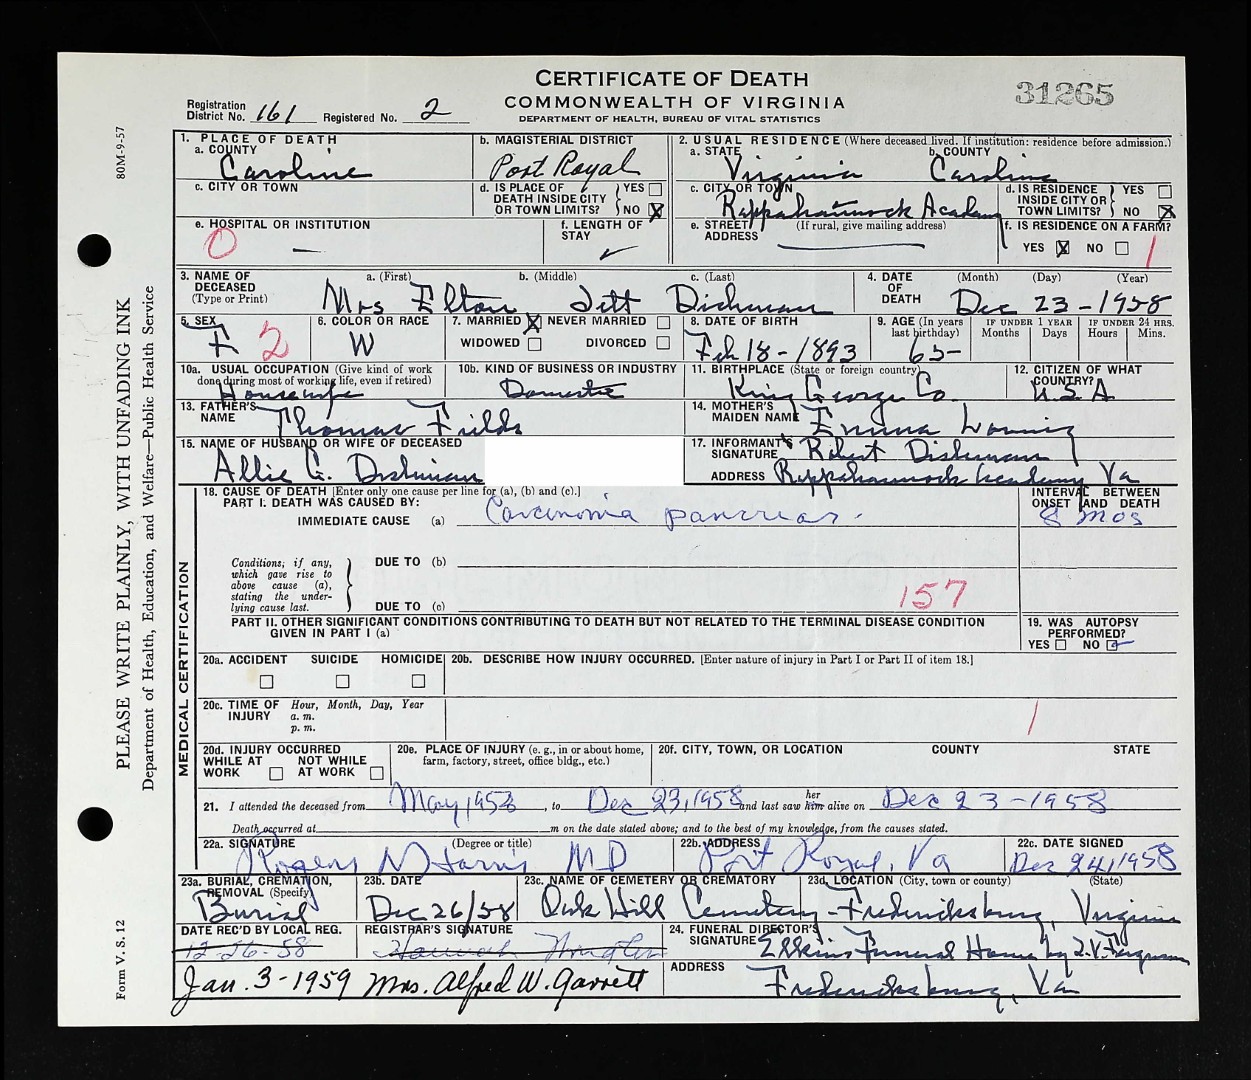 CERTIFICATE OF DEATH
COMMONWEALTH OF VIRGINIA
DEPARTMENT OF HEALTH, BUREAU OF VITAL STATISTICS
31265
Registration District No. 161 Registered No. 2
80M-9-57
PLEASE WRITE PLAINLY, WITH UNFADING INK
Department of Health, Education, and Welfare—Public Health Service
Form V. S. 12
1. PLACE OF DEATH
a. COUNTY
Caroline
b. MAGISTERIAL DISTRICT
Port Royal
2. USUAL RESIDENCE (Where deceased lived. If institution: residence before admission.)
a. STATE b. COUNTY
Virginia Caroline
c. CITY OR TOWN
d. IS PLACE OF DEATH INSIDE CITY OR TOWN LIMITS? YES NO X
c. CITY OR TOWN
Rappahannock Academy
d. IS RESIDENCE INSIDE CITY OR TOWN LIMITS? YES NO X
e. HOSPITAL OR INSTITUTION
0 —
f. LENGTH OF STAY
✓
e. STREET ADDRESS (If rural, give mailing address)
f. IS RESIDENCE ON A FARM?
YES X NO 1
3. NAME OF DECEASED (Type or Print) a. (First) b. (Middle) c. (Last)
Mrs Elton Jett Dishman
4. DATE OF DEATH (Month) (Day) (Year)
Dec 23-1958
5. SEX
F 2
6. COLOR OR RACE
W
7. MARRIED X NEVER MARRIED
WIDOWED DIVORCED
8. DATE OF BIRTH
Feb 18-1893
9. AGE (In years last birthday)
65
IF UNDER 1 YEAR Months Days
IF UNDER 24 HRS. Hours Mins.
10a. USUAL OCCUPATION (Give kind of work done during most of working life, even if retired)
Housewife
10b. KIND OF BUSINESS OR INDUSTRY
Domestic
11. BIRTHPLACE (State or foreign country)
King George Co.
12. CITIZEN OF WHAT COUNTRY?
U.S.A
13. FATHER'S NAME
Thomas Fields
14. MOTHER'S MAIDEN NAME
Emma
15. NAME OF HUSBAND OR WIFE OF DECEASED
Allie G. Dishman
17. INFORMANT'S SIGNATURE Robert Dishman
ADDRESS Rappahannock Academy Va
MEDICAL CERTIFICATION
18. CAUSE OF DEATH [Enter only one cause per line for (a), (b) and (c).]
PART I. DEATH WAS CAUSED BY:
IMMEDIATE CAUSE (a) Carcinomia pancreas.
INTERVAL BETWEEN ONSET AND DEATH
8 mos
Conditions, if any, which gave rise to above cause (a), stating the underlying cause last.
DUE TO (b)
DUE TO (c)
157
PART II. OTHER SIGNIFICANT CONDITIONS CONTRIBUTING TO DEATH BUT NOT RELATED TO THE TERMINAL DISEASE CONDITION GIVEN IN PART I (a)
19. WAS AUTOPSY PERFORMED?
YES NO ✓
20a. ACCIDENT SUICIDE HOMICIDE
20b. DESCRIBE HOW INJURY OCCURRED. [Enter nature of injury in Part I or Part II of item 18.]
20c. TIME OF INJURY Hour, Month, Day, Year
a. m.
p. m.
1
20d. INJURY OCCURRED
WHILE AT WORK NOT WHILE AT WORK
20e. PLACE OF INJURY (e. g., in or about home, farm, factory, street, office bldg., etc.)
20f. CITY, TOWN, OR LOCATION COUNTY STATE
21. I attended the deceased from May, 1958, to Dec 23, 1958 and last saw her him alive on Dec 23-1958
Death occurred at m on the date stated above; and to the best of my knowledge, from the causes stated.
22a. SIGNATURE (Degree or title)
Rogers N Harris MD
22b. ADDRESS
Port Royal, Va
22c. DATE SIGNED
Dec 24, 1958
23a. BURIAL, CREMATION, REMOVAL (Specify)
Burial
23b. DATE
Dec 26/58
23c. NAME OF CEMETERY OR CREMATORY
Oak Hill Cemetery-
23d. LOCATION (City, town or county) (State)
Fredericksburg, Virginia
DATE REC'D BY LOCAL REG.
12-26-58
Jan. 3-1959
REGISTRAR'S SIGNATURE
Hannah
Mrs. Alfred W. Garrett
24. FUNERAL DIRECTOR'S SIGNATURE
Elkins Funeral Home by L.V. Ferguson
ADDRESS
Fredericksburg, Va